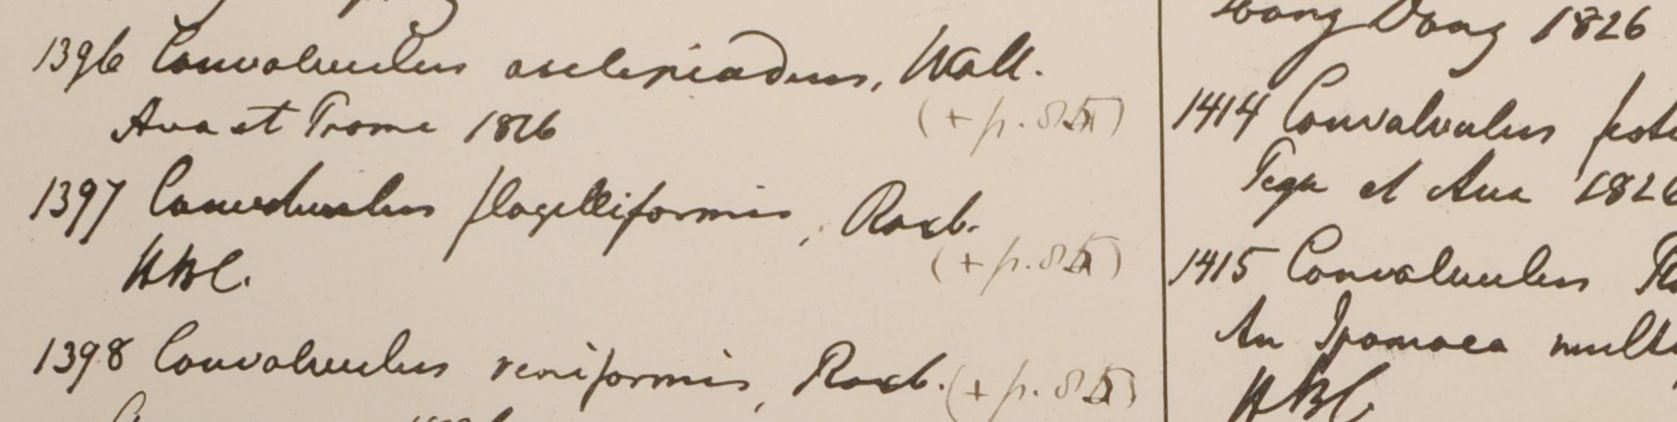 1396 Convolvulus asclepiadeus, Wall.
Ava et Prome 1826
(+ p.
1397 Convolvulus flagelliformis, Roxb.
HBC.
(+ p.
1398 Convolvulus reniformis, Roxb. (+ p.
Dong 1826
1414 Convolvulus
Pegu et Ava 1826
1415 Convolvulus
An Ipomaea
HBC.